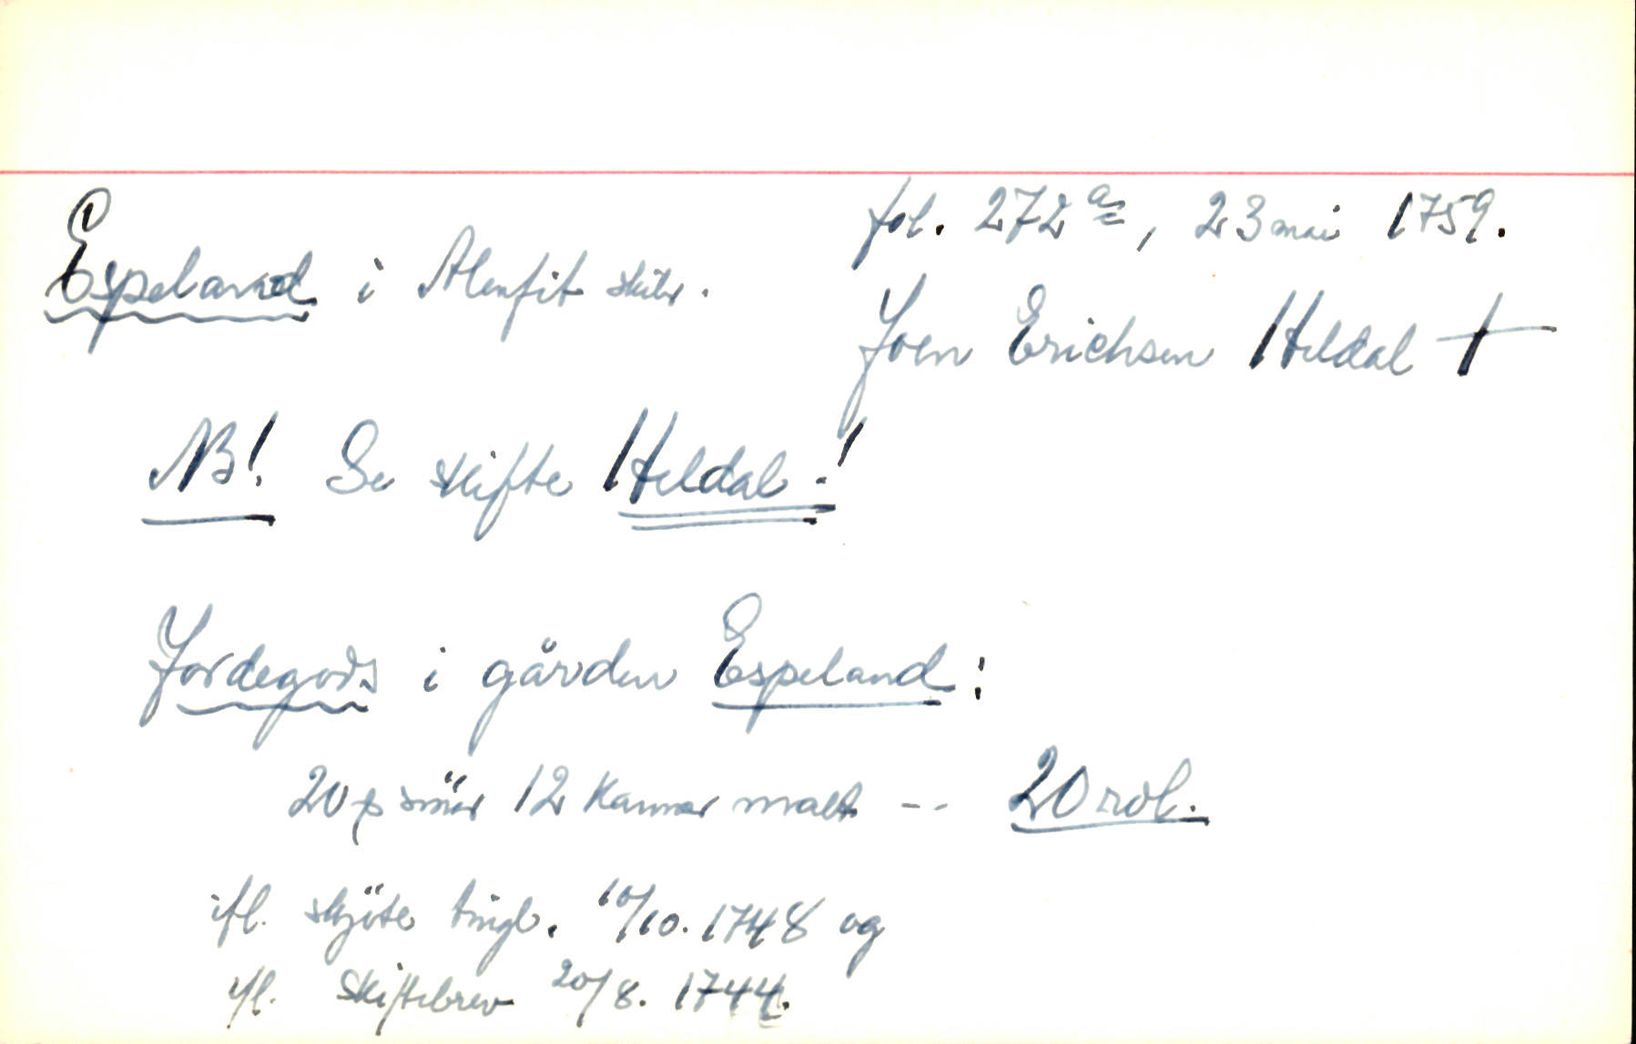 fol. 272 a, 23 mai 1759.
Espeland i Alenfit skibr.
Joen Erichsen Heldal †
NB! Se skifte Heldal!
Jordegods i gården Espeland:
20 p smör 12 Kannor malt -- 20 rdl.
ifl. skjöte tingl. 10/10. 1748 og
ifl. Skiftebrev 20/8. 1744.